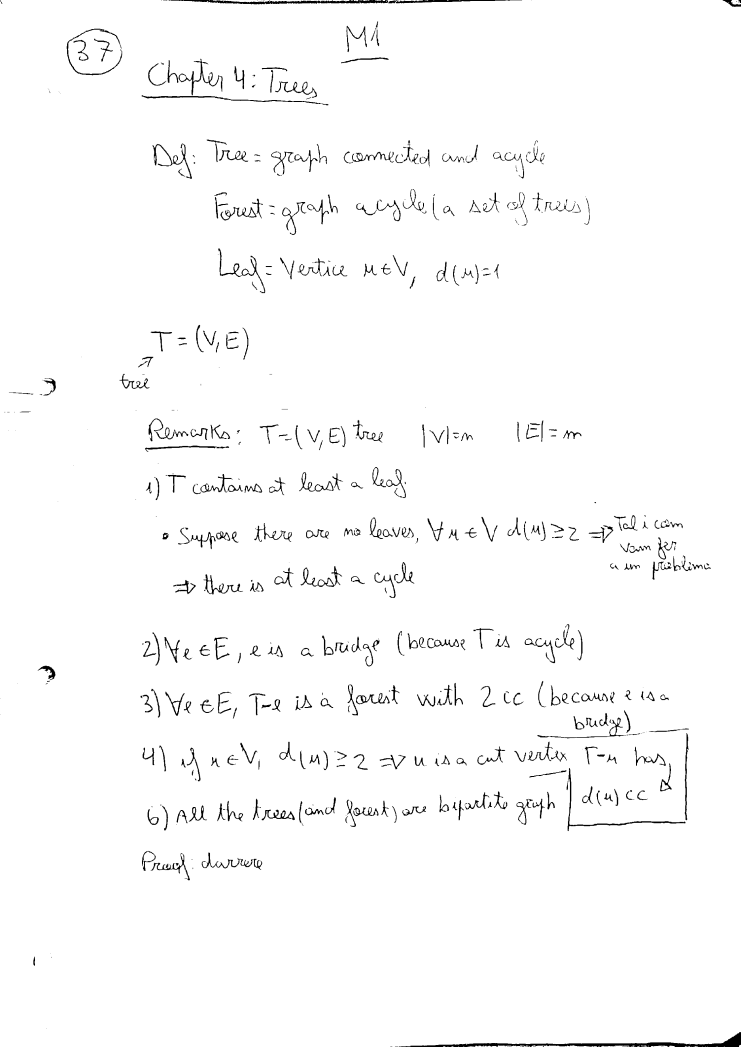 37
M1
Chapter 4: Trees
Def: Tree = graph connected and acycle
Forest = graph acycle (a set of trees)
Leaf = Vertice u ∈ V, d(u)=1
T = (V, E)
tree
Remarks: T=(V,E) tree |V|=n |E|=m
1) T contains at least a leaf.
• Suppose there are no leaves, ∀u ∈ V d(u) ≥ 2 ⇒ Tal i com
vam fer
a un problema
⇒ there is at least a cycle
2) ∀e ∈ E, e is a bridge (because T is acycle)
3) ∀e ∈ E, T-e is a forest with 2 cc (because e is a
bridge)
4) if u ∈ V, d(u) ≥ 2 ⇒ u is a cut vertex T-u has
d(u) cc
6) All the trees (and forest) are bipartite graph
Proof: darrere